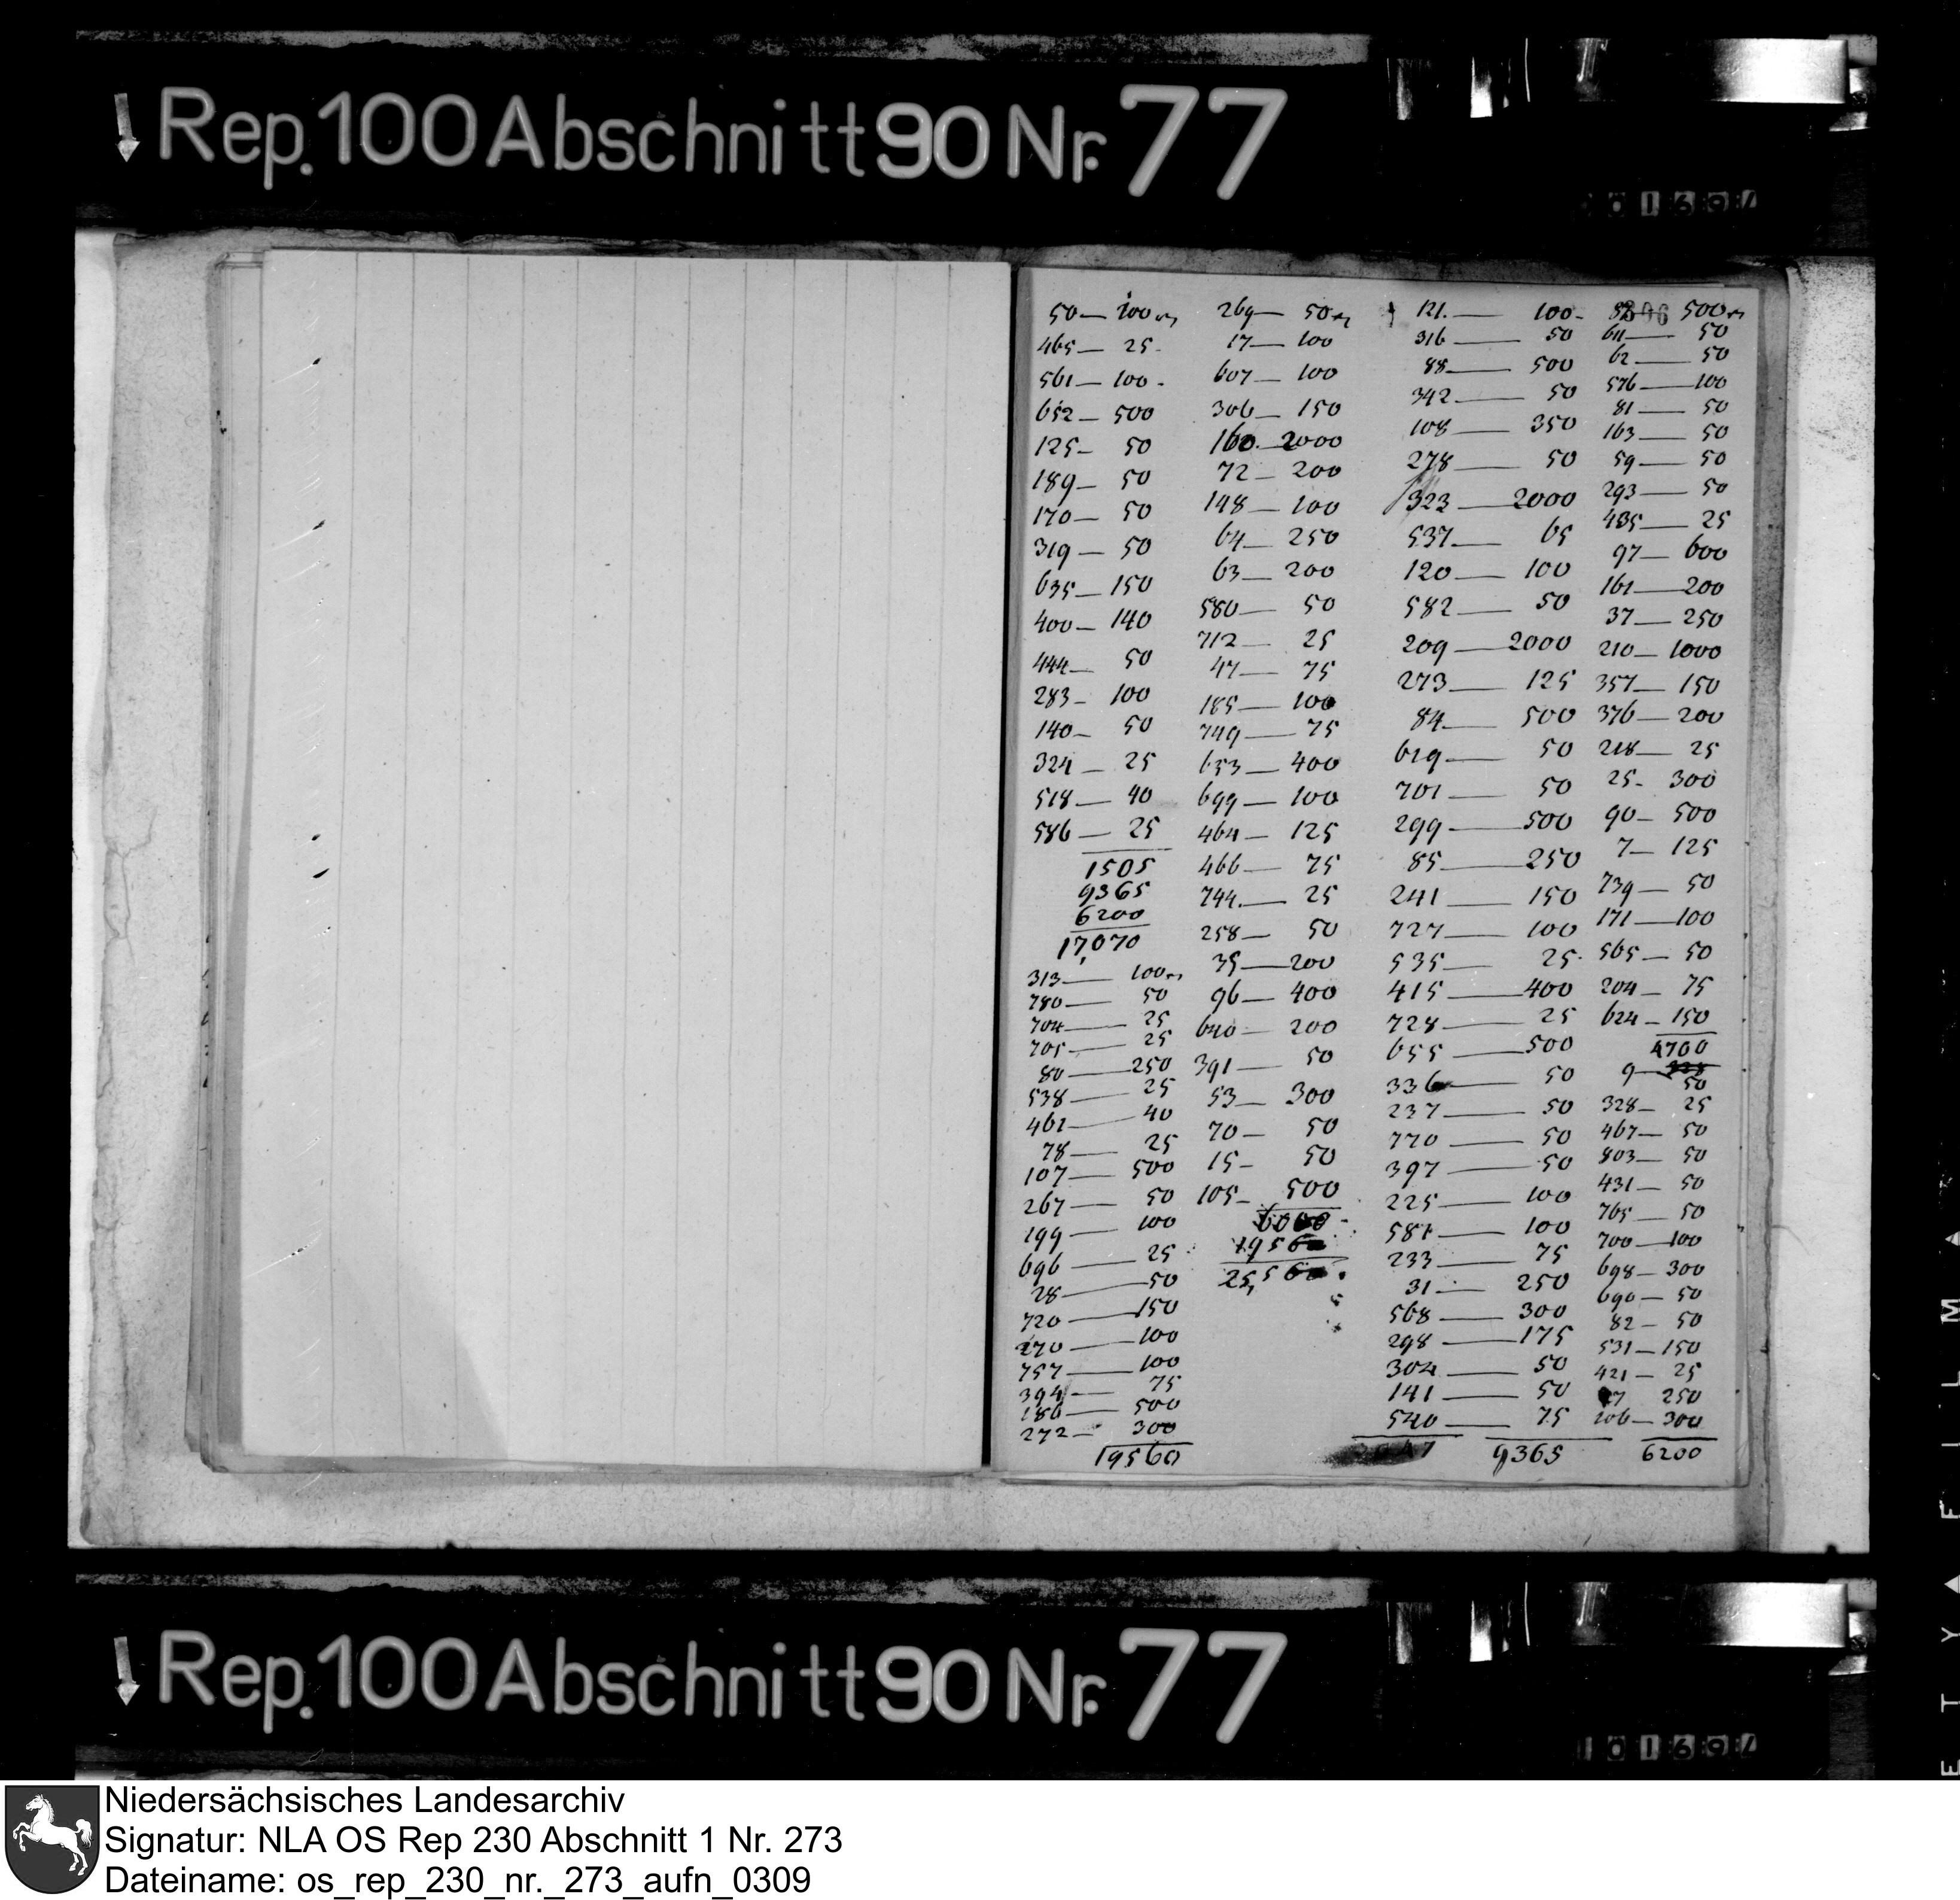 Rep. 100 Abschnitt 90 Nr. 77
50 — 100
465 — 25
561 — 100
652 — 500
125 — 50
189 — 50
170 — 50
319 — 50
635 — 150
400 — 140
444 — 50
283 — 100
140 — 50
324 — 25
518 — 40
586 — 25
1505
9365
6200
17,070
313 — 100
780 — 50
704 — 25
705 — 25
80 — 250
538 — 25
461 — 40
78 — 25
107 — 500
267 — 50
199 — 100
696 — 25
28 — 50
720 — 150
270 — 100
757 — 100
394 — 75
186 — 500
272 — 300
19560
269 — 50
17 — 100
607 — 100
306 — 150
160 — 2000
72 — 200
148 — 100
64 — 250
63 — 200
580 — 50
712 — 25
47 — 75
185 — 100
749 — 75
653 — 400
699 — 100
464 — 125
466 — 75
744 — 25
258 — 50
35 — 200
96 — 400
640 — 200
391 — 50
53 — 300
70 — 50
15 — 50
105 — 500
6000
19560
25,560
121. — 100
316 — 50
88 — 500
342 — 50
108 — 350
278 — 50
323 — 2000
537 — 65
120 — 100
582 — 50
209 — 2000
273 — 125
84 — 500
619 — 50
701 — 50
299 — 500
85 — 250
241 — 150
727 — 100
535 — 25
415 — 400
728 — 25
655 — 500
336 — 50
237 — 50
770 — 50
397 — 50
225 — 100
581 — 100
233 — 75
31 — 250
568 — 300
298 — 175
304 — 50
141 — 50
540 — 75
9365
306
500
611 — 50
62 — 50
576 — 100
81 — 50
163 — 50
59 — 50
293 — 50
485 — 25
97 — 600
161 — 200
37 — 250
210 — 1000
357 — 150
376 — 200
218 — 25
25 — 300
90 — 500
7 — 125
739 — 50
171 — 100
565 — 50
204 — 75
624 — 150
4700
9 — 50
328 — 25
467 — 50
803 — 50
431 — 50
765 — 50
700 — 100
698 — 300
690 — 50
82 — 50
531 — 150
421 — 25
250
106 — 300
6200
Rep. 100 Abschnitt 90 Nr. 77
Niedersächsisches Landesarchiv
Signatur: NLA OS Rep 230 Abschnitt 1 Nr. 273
Dateiname: os_rep_230_nr._273_aufn_0309